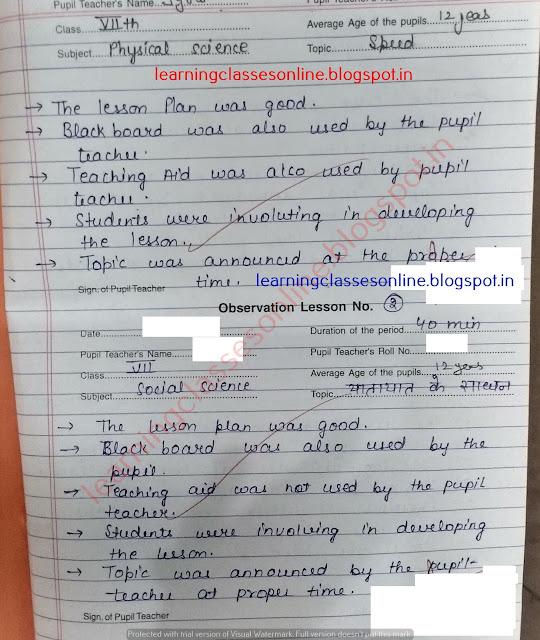 Pupil Teacher's Name
Class VIIth
Average Age of the pupils 12 yeas
Subject Physical science
Topic Speed
learningclassesonline.blogspot.in
→ The lesson Plan was good.
→ Black board was also used by the pupil
teacher.
→ Teaching Aid was alco used by pupil
teacher.
→ Students were involuting in developing
the lesson.
→ Topic was announced at the proper
time.
learningclassesonline.blogspot.in
Sign. of Pupil Teacher
Observation Lesson No. ②
Date
Duration of the period 40 min
Pupil Teacher's Name
Pupil Teacher's Roll No.
Class VII
Average Age of the pupils 12 yeas
Subject Social Science
Topic यातायात के साधन
→ The lesson plan was good.
→ Black board was also used by the
pupil.
→ Teaching aid was not used by the pupil
teacher.
→ Students were involving in developing
the lesson.
→ Topic was announced by the pupil-
teacher at proper time.
Sign. of Pupil Teacher
learningclassesonline.blogspot.in
Protected with trial version of Visual Watermark. Full version doesn't put this mark.